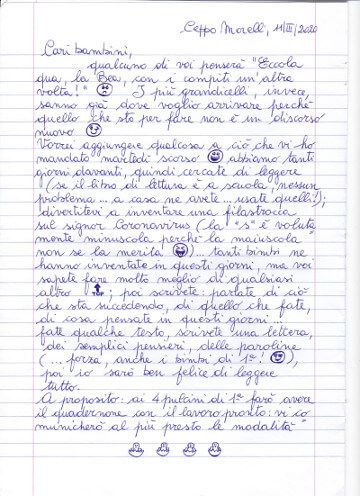 Ceppo Morelli, 11/III/2020
Cari bambini,
qualcuno di voi penserà "Eccola
qua, la Bea, con i compiti un'altra
volta!" I più grandicelli, invece,
sanno già dove voglio arrivare perché
quello che sto per fare non è un discorso
nuovo
Vorrei aggiungere qualcosa a ciò che vi ho
mandato martedì scorso abbiamo tanti
giorni davanti, quindi cercate di leggere
(se il libro di lettura è a scuola, nessun
problema... a casa ne avete... usate quelli!);
divertitevi a inventare una filastrocca
sul signor Coronavirus (la "s" è voluta
mente minuscola perché la maiuscola
non se la merita )... tanti bimbi ne
hanno inventate in questi giorni, ma voi
sapete fare molto meglio di qualsiasi
altro ; poi scrivete: parlate di ciò
che sta succedendo, di quello che fate,
di cosa pensate in questi giorni...
fate qualche testo, scrivete una lettera,
dei semplici pensieri, delle paroline
(... forza, anche i bimbi di 1ª! ),
poi io sarò ben felice di leggere
tutto.
A proposito: ai 4 pulcini di 1ª farò avere
il quadernone con il lavoro pronto: vi co
municherò al più presto le modalità"